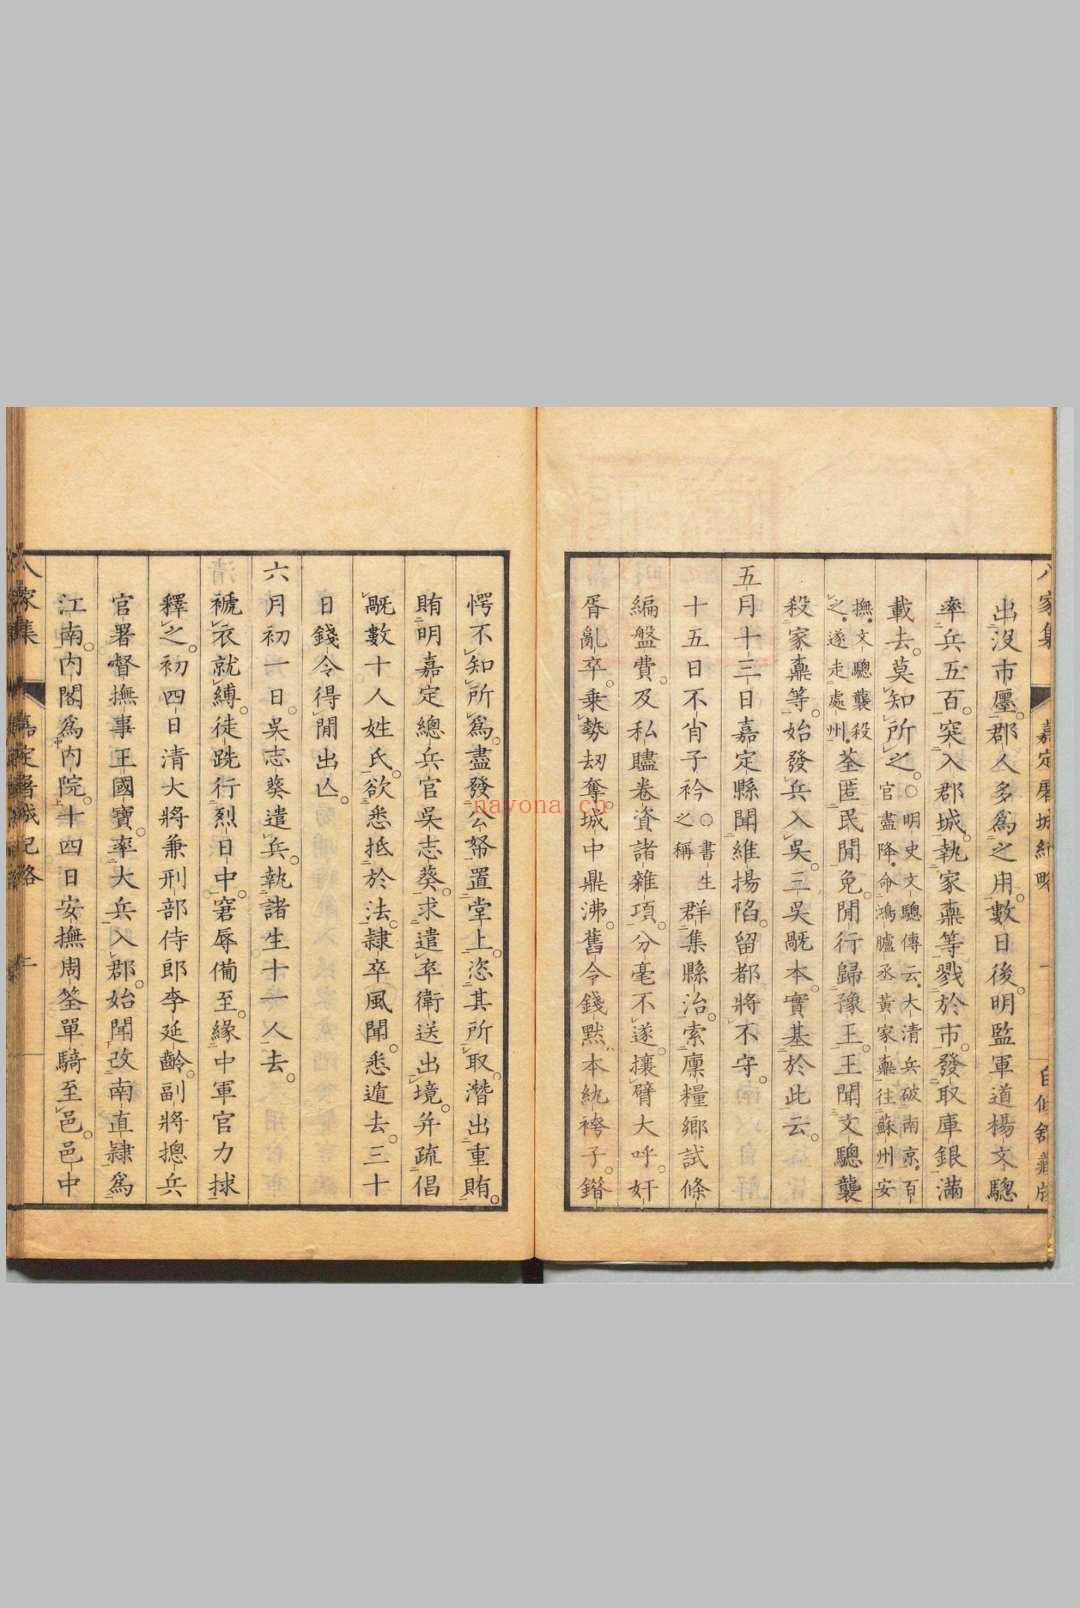 出沒市廛郡人多爲之用數日後明監軍道楊文驄
率兵五百突入郡城執家鼒等戮於市發取庫銀滿
載去莫知所之○明史文驄傳云大清兵破南京百
官盡降命鴻臚丞黃家鼒往蘇州安
撫文驄襲殺
之遂走處州荃匿民閒免閒行歸豫王王聞文驄襲
殺家鼒等始發兵入吳三吳郡本實基於此云
五月十三日嘉定縣聞維揚陷留都將不守
十五日不肖子衿○書生
之稱群集縣治索廪糧鄉試條
編盤費及私贐卷資諸雜項分毫不遂攘臂大呼奸
胥亂卒乗勢刼奪城中鼎沸舊令錢默本紈袴子
愕不知所爲盡發公帑置堂上恣其所取潛出重賄
賄明嘉定總兵官吳志葵求遣卒衛送出境并疏倡
數十人姓氏欲悉抵於法隷卒風聞悉遁去三十
日錢令得閒出亾
六月初一日吳志葵遣兵執諸生十一人去
褫衣就縛徒跣行烈日中窘辱備至緣中軍官力捄
釋之初四日清大將兼刑部侍郎李延齡副將摠兵
官署督撫事王國寶率大兵入郡始聞改南直隷爲
江南內閣爲內院十四日安撫周荃單騎至邑邑中
八家集
嘉定屠城紀略
nayona.cn